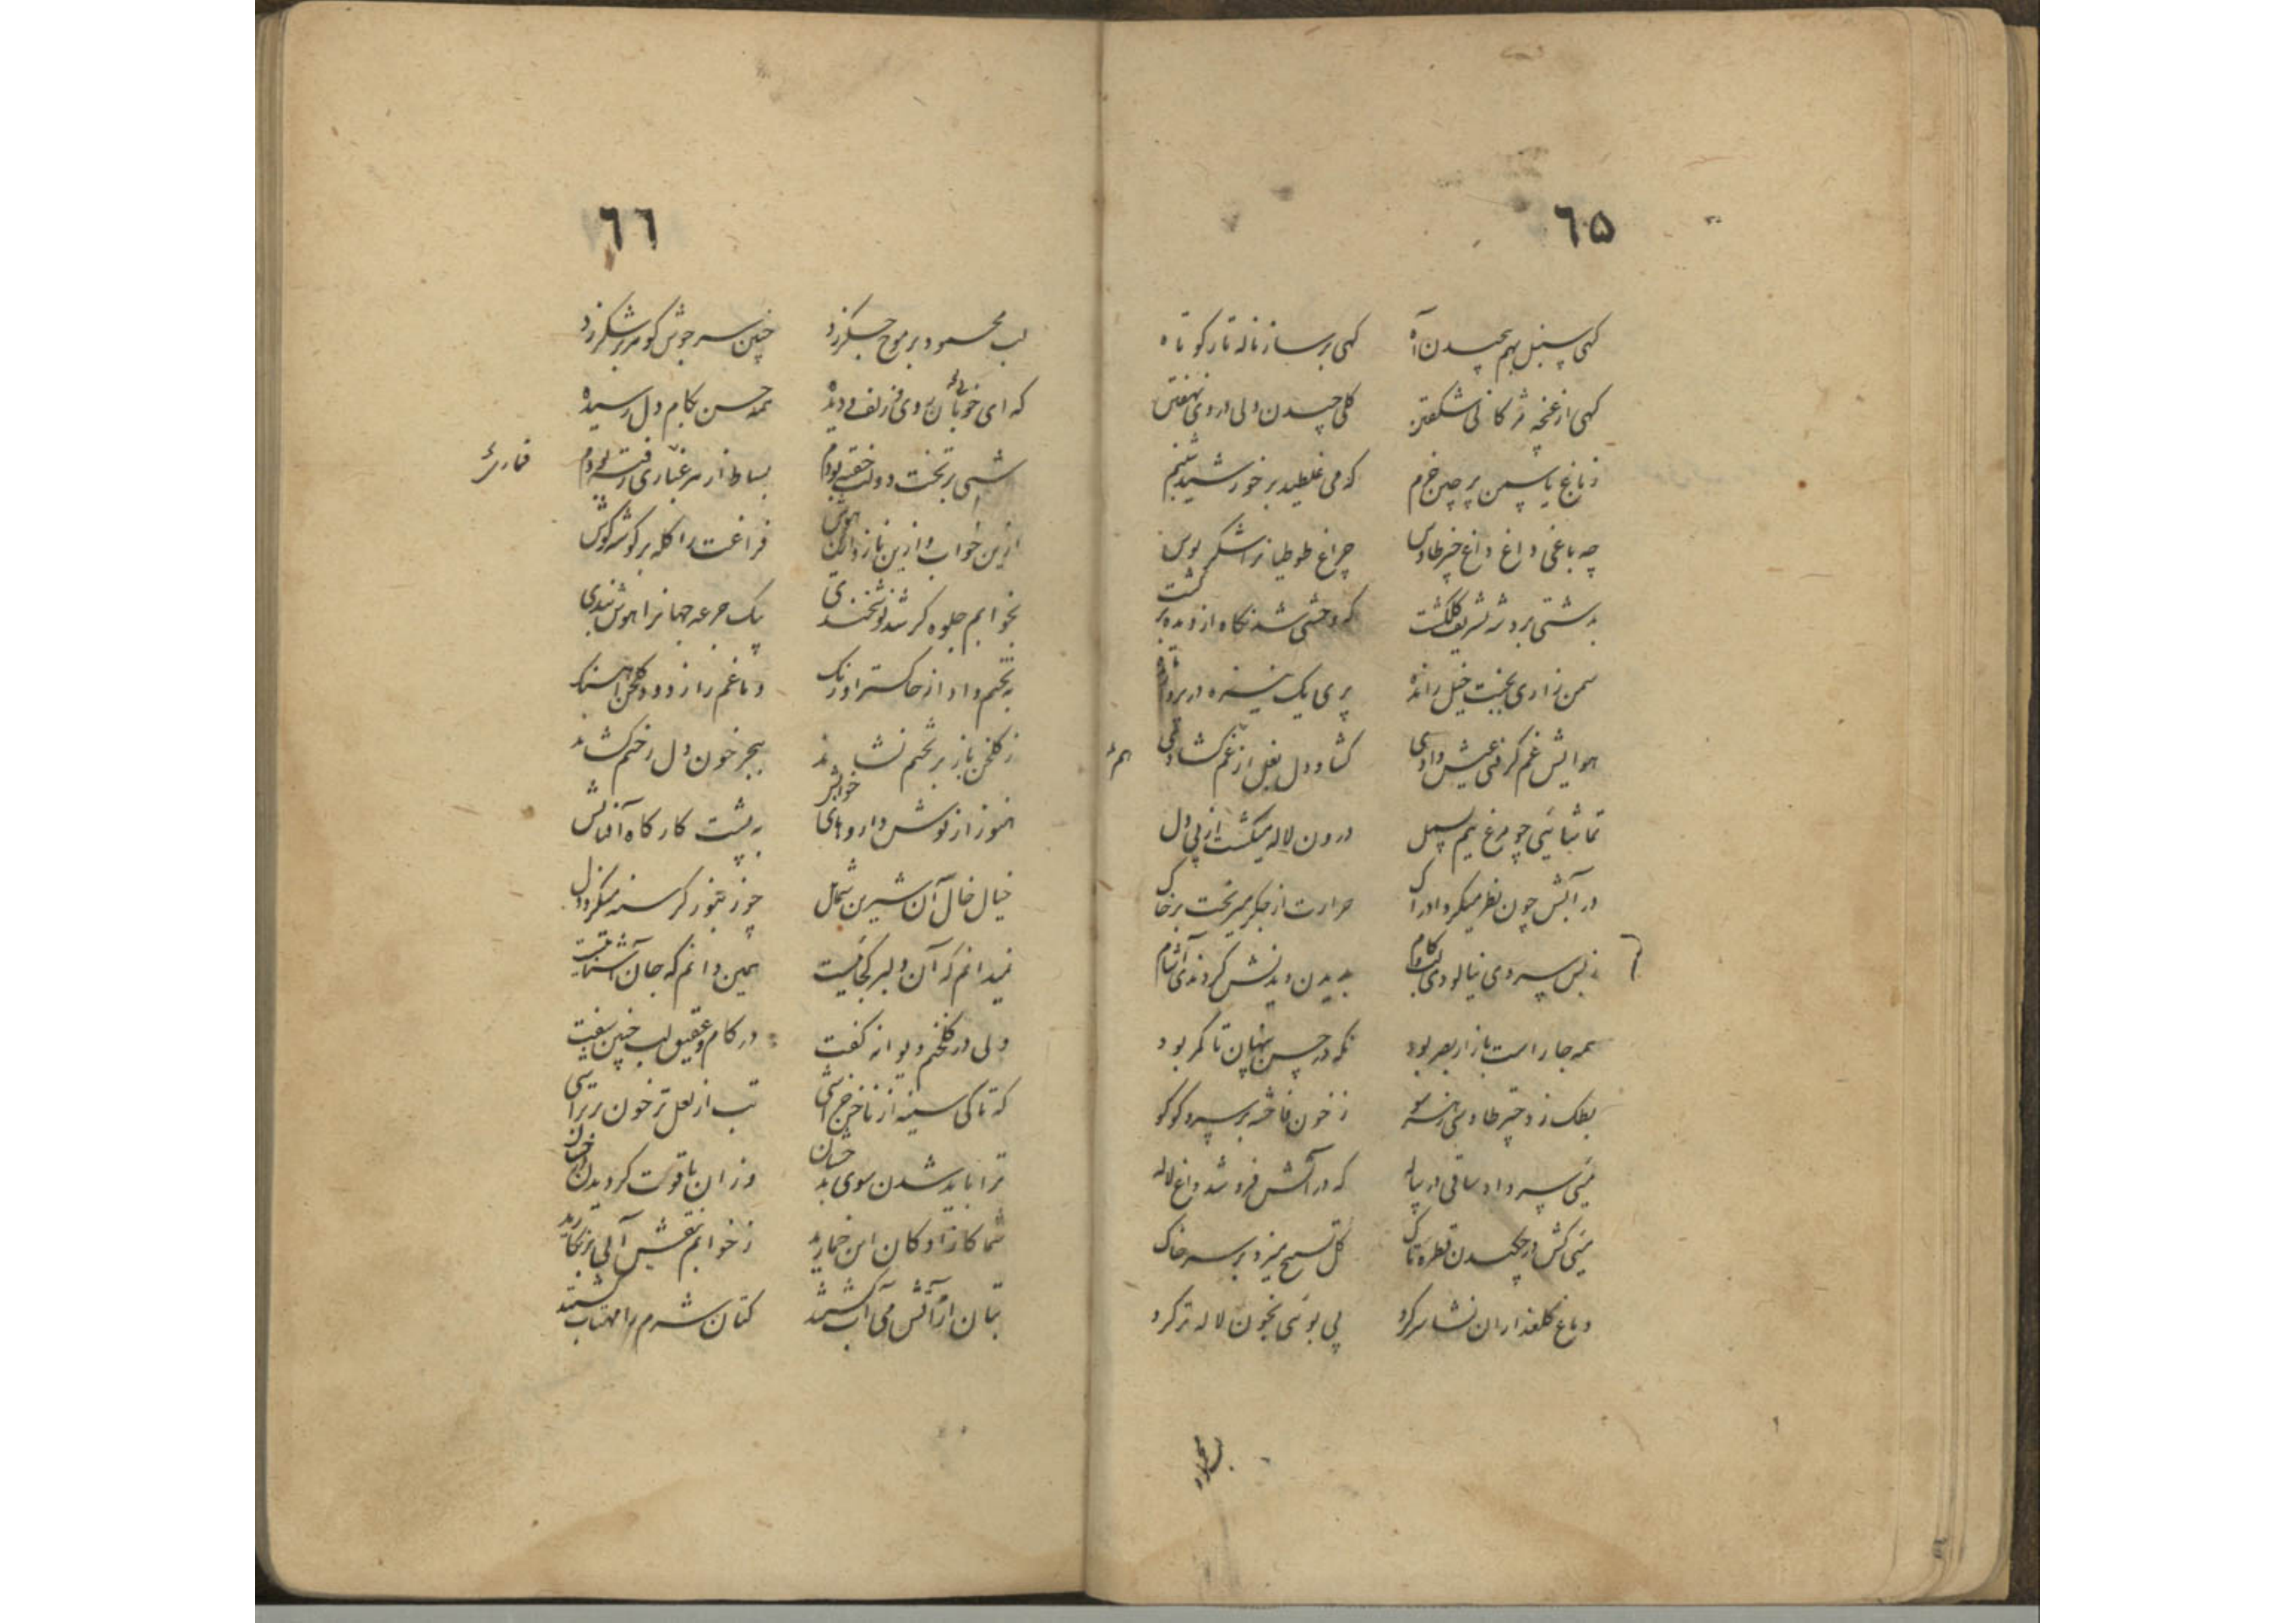 ٦٥
کهی سنبل بهم پیچیدن آه کهی بر ساز ناله تار کوتاه
کهی از غنچه مژکانی شکفتن کلی چیدن ولی در وی نهفتن
ز باغ یاسمن پر چین خرم که می غلطید بر خورشید شبنم
چه باغی داغ داغ چتر طاوس چراغ طوطیانرا شکر بوس
بهشتی برد شریف کلکشت که وحشی شد نکاه از دیده بر کشت
سمن زاری بجنبت خیل رانده پری یک شیشه در
هوایش غم کر فتی عیش دادی کشاد دل بغل از غم کشادی
هم
تماشائی چو مرغ نیم بسمل درون لاله میکشت از پی دل
در آبش چون نظر میکرد ادراک حرارت از جکر میریخت بر خاک
ز بس سردی نیالودی لب و کام بدیدن دیدنش کردند آشام
همه جا راست بازار بصر بود نکه در حسن پنهان تا کمر بود
بطک زد چتر طاوسی ز هر سو ز خون فاخته بر سرو کوکو
میی سر داد ساقی در پیاله که در آتش فرو شد داغ لاله
میی کش در چکیدن قطره تاک کل تسبیح میزد بر سر خاک
دماغ کلعذاران نشا سر کرد پی بوئی بخون لاله تر کرد
لب محمود
٦٦
لب محمود بر موج جکر زد چنین سر جوش کوهر بر شکر زد
که ای خوبان روی زلف دیده همه حسن بکام دل رسیده
شبی بر تخت دولت خفته بودم بساط از هر غباری رفته بودم
ازین خواب و ازین ناز فراغت را کله بر کوشه کوش
بخوابم جلوه کر شد نوشخندی بیک جرعه جهانرا هوش بندی
بتختم داد از خاکستر اورنک دماغم را ز دود کلخن آهنک
ز کلخن باز بر تختم نشاند بهجر خون دل رختم کشاند
هنوز از نوش داروهای خوابش به پشت کار کاه آفتابش
خیال خال آن شیرین شمایل چوزنبور کرسنه میکزد دل
نمیدانم که آن دلبر کجائیست همین دانم که جان آشنائیست
ولی در کلخنم دیوانه کفت در کام و عقیق لب چنین سفت
که تا کی سینه از ناخن خراشی تب از لعل تر خون تراشی
ترا باید شدن سوی بدخشان وزان یاقوت کردیدن درخشان
شما کازادکان این خمارید ز خوابم نقش آبی بر نکارید
بتان از آتش می آب کشتند کتان شرم را مهتاب کشتند